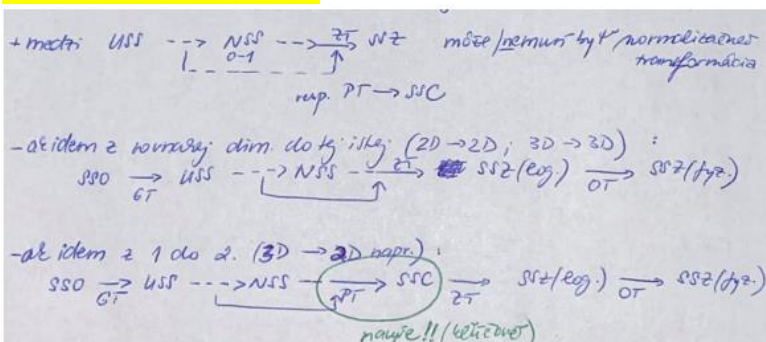 + medzi USS ---> NSS ---> ZT SSZ môže/nemusí byť normalizačná
0-1 transformácia
resp. PT → SSC
- ak idem z rovnakej dim. do tej istej (2D → 2D; 3D → 3D) :
SSO → GT USS ---> NSS ---> ZT SSZ (log.) → OT SSZ (fyz.)
- ak idem z 1 do 2. (3D → 2D napr.) :
SSO → GT USS ---> NSS → PT SSC → ZT SSZ (log.) → OT SSZ (fyz.)
navyše!! (